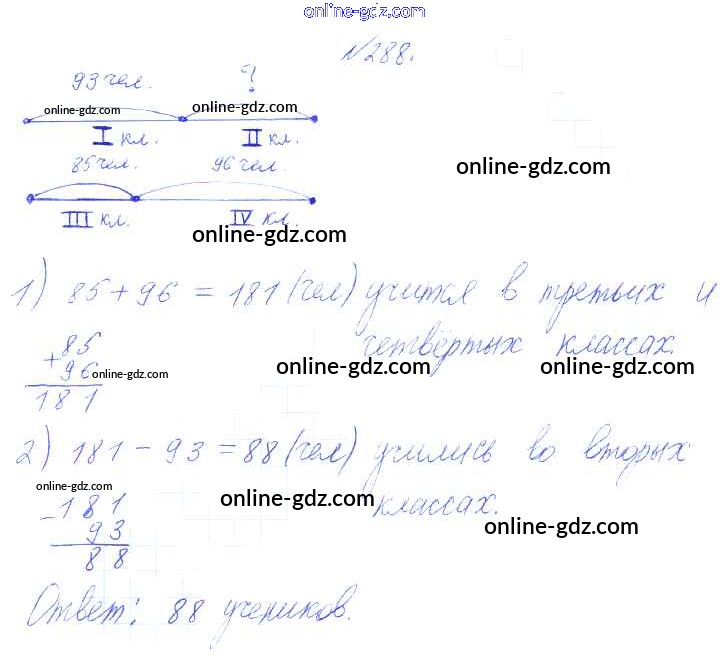 online-gdz.com
№288.
93 чел. ?
online-gdz.com online-gdz.com
I кл. II кл.
85 чел. 96 чел.
online-gdz.com
III кл. IV кл.
online-gdz.com
1) 85 + 96 = 181 (чел) учится в третьих и
четвёртых классах.
+85
96 online-gdz.com online-gdz.com online-gdz.com
181
2) 181 - 93 = 88 (чел) учились во вторых
классах.
online-gdz.com online-gdz.com
-181 online-gdz.com
93
88
Ответ: 88 учеников.